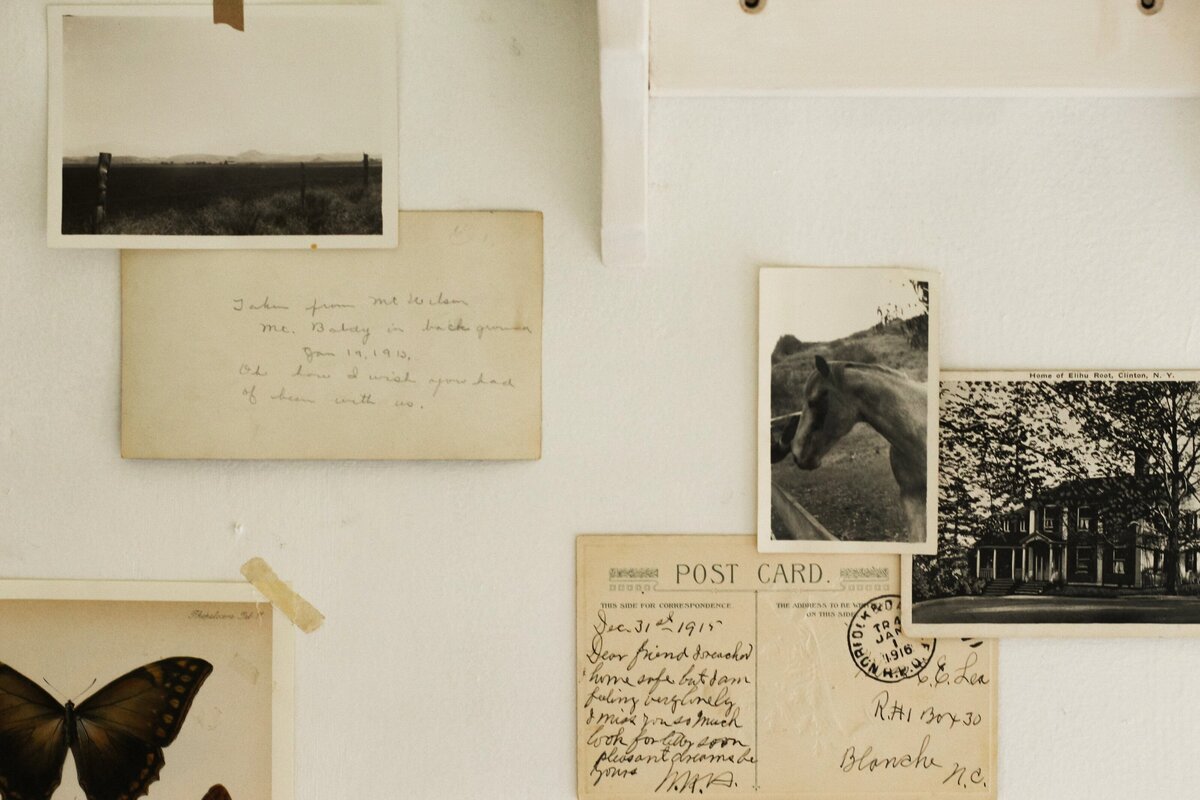 Taken from Mt Wilson
Mt. Baldy in back ground
Jan 19, 1913.
Oh how I wish you had
of been with us.
Home of Elihu Root, Clinton, N. Y.
POST CARD.
THIS SIDE FOR CORRESPONDENCE
THE ADDRESS TO BE
ON THIS SIDE
Dec. 31st - 1915
Dear friend I reached
home safe but I am
feeling very lonely
I miss you so much
look for letter soon
pleasant dreams be
yours
NORFOLK & DA
TRA
JAN
1
1916
R.P.O.
C. E. Lea
R.#1 Box 30
Blanche
N.C.